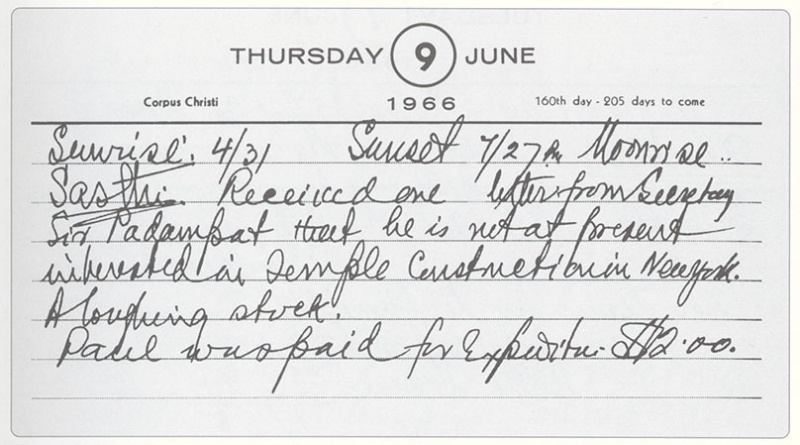 THURSDAY 9 JUNE
Corpus Christi 1966 160th day - 205 days to come
Sunrise. 4/31 Sunset 7/27 P.M. Moonrise ..
Sasthi. Received one letter from Secretary
Sir Padampat that he is not at present
interested in Temple Construction in Newyork.
A loughing stock.
Paul was paid for $2.00.